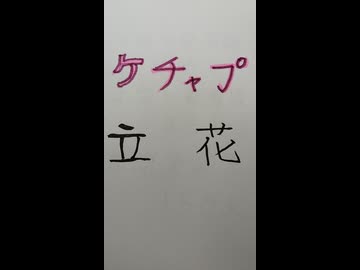 ケチャプ
立花